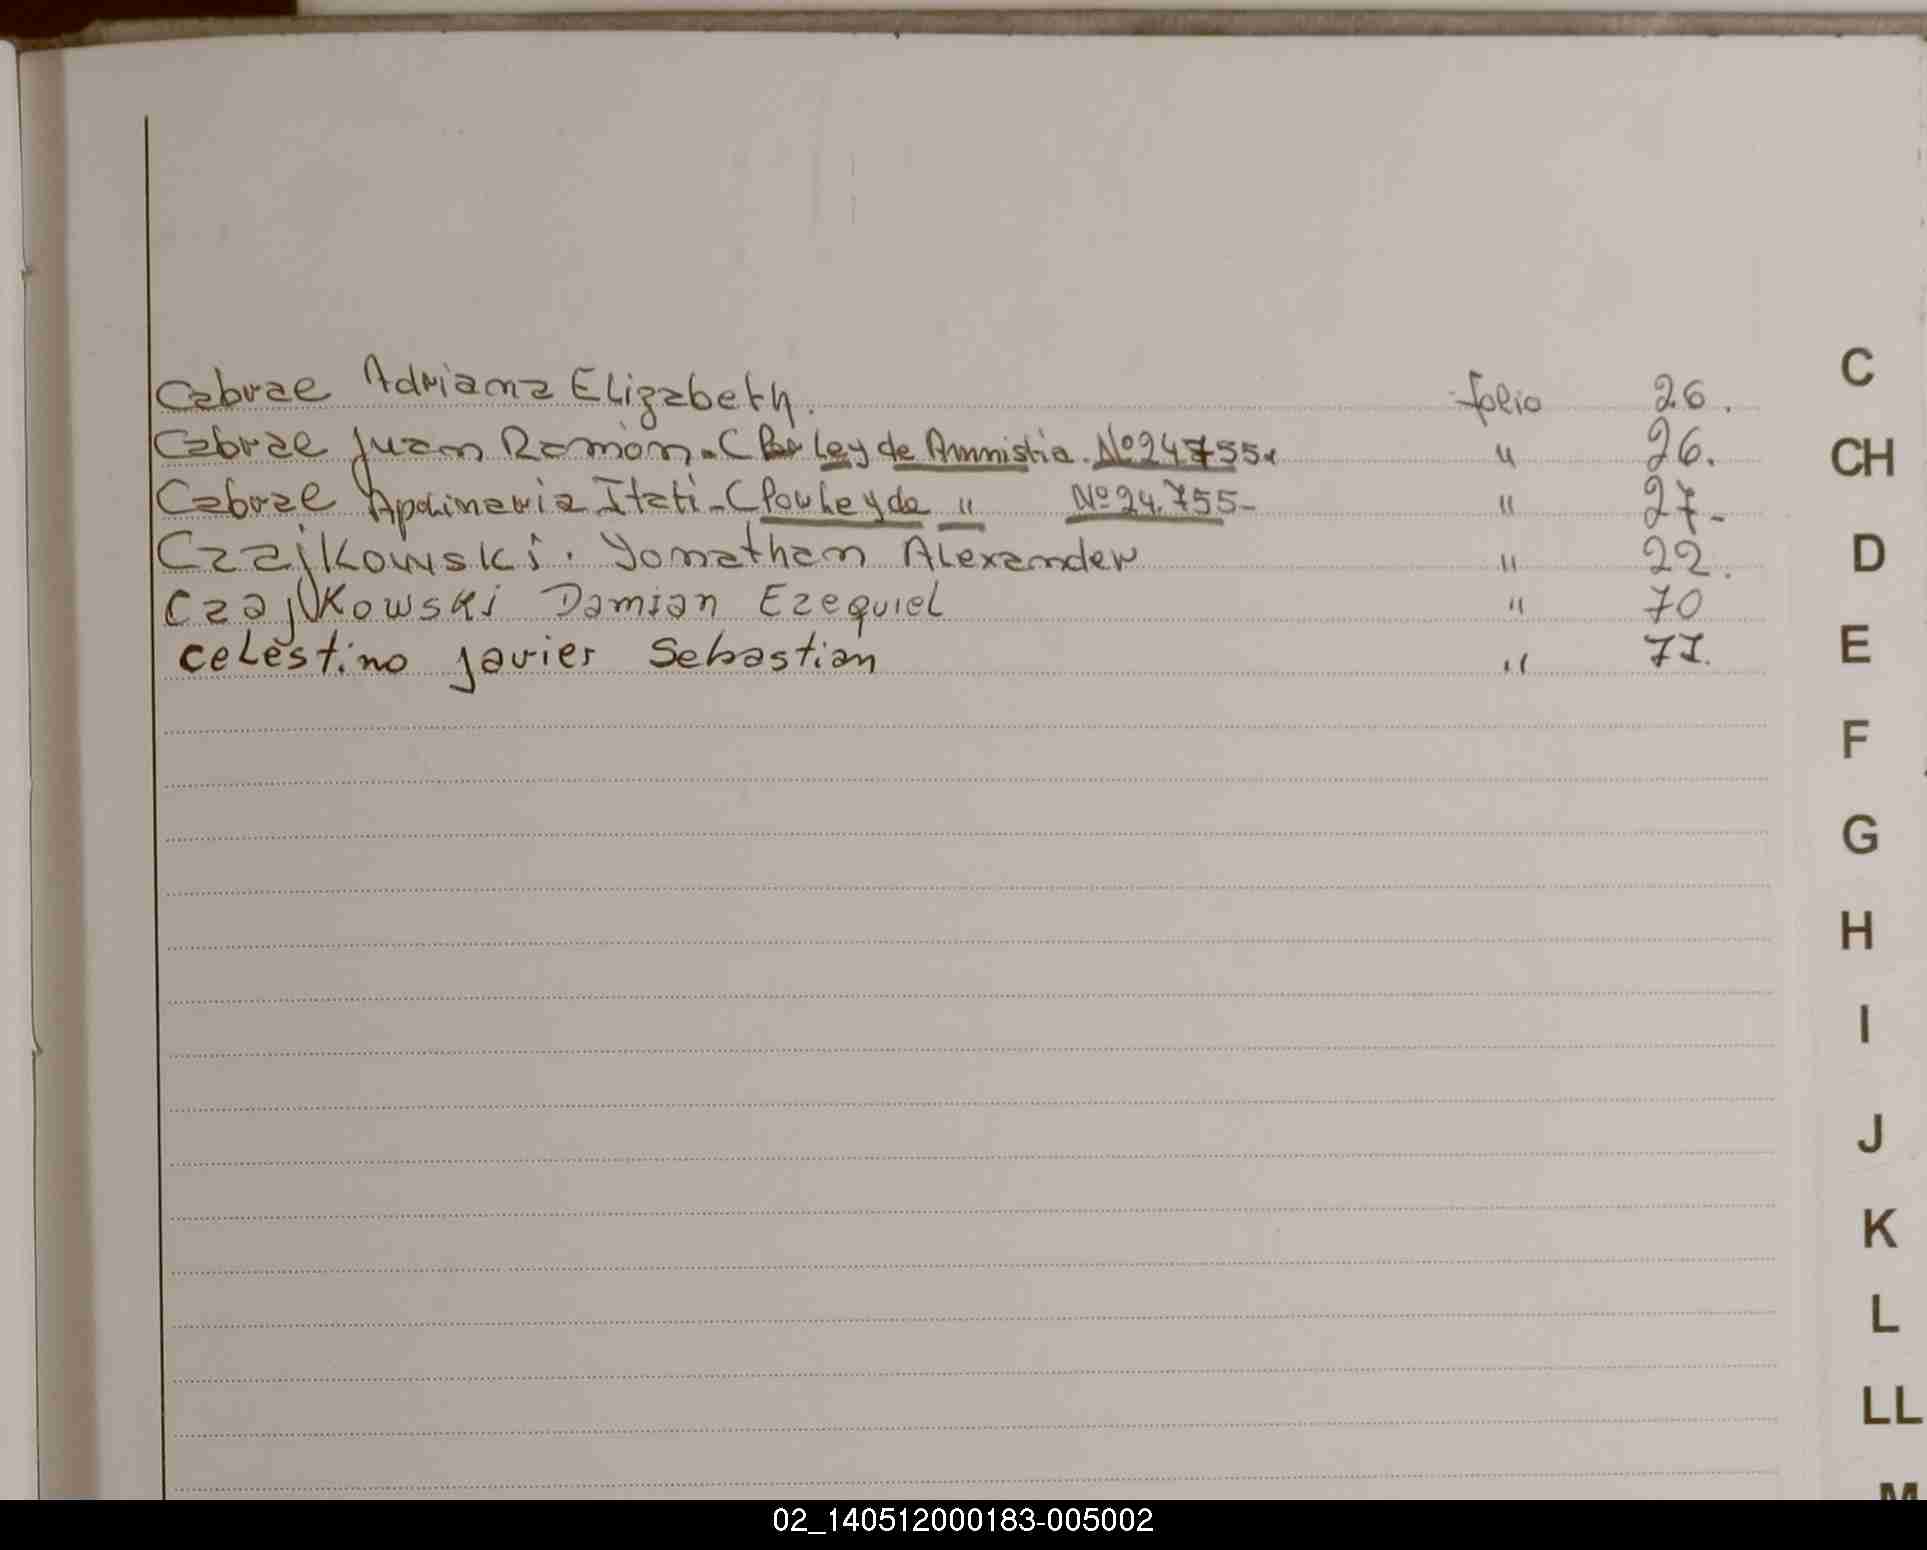 Cabrae Adriana Elizabeth. folio 26.
Cabrae Juan Ramón - (Por Ley de Amnistia. Nº 24755. " 26.
Cabrae Apolinaria Itati - (Por Ley de " Nº 24.755- " 27-
Czajkowski. Yonathan Alexander " 22.
Czajkowski Damian Ezequiel " 70
Celestino Javier Sebastian " 71.
C
CH
D
E
F
G
H
I
J
K
L
LL
M
02_140512000183-005002